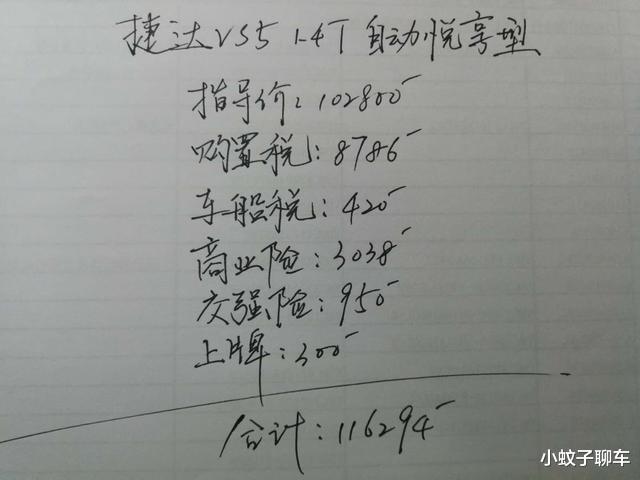 捷达VS5 1.4T 自动悦享型
指导价:102800-
购置税:8786-
车船税:420-
商业险:3038-
交强险:950-
上牌:300-
合计:116294-
小蚊子聊车